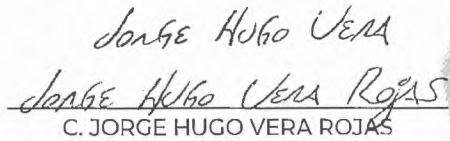 Jorge Hugo Vera
Jorge Hugo Vera Rojas
C. JORGE HUGO VERA ROJAS